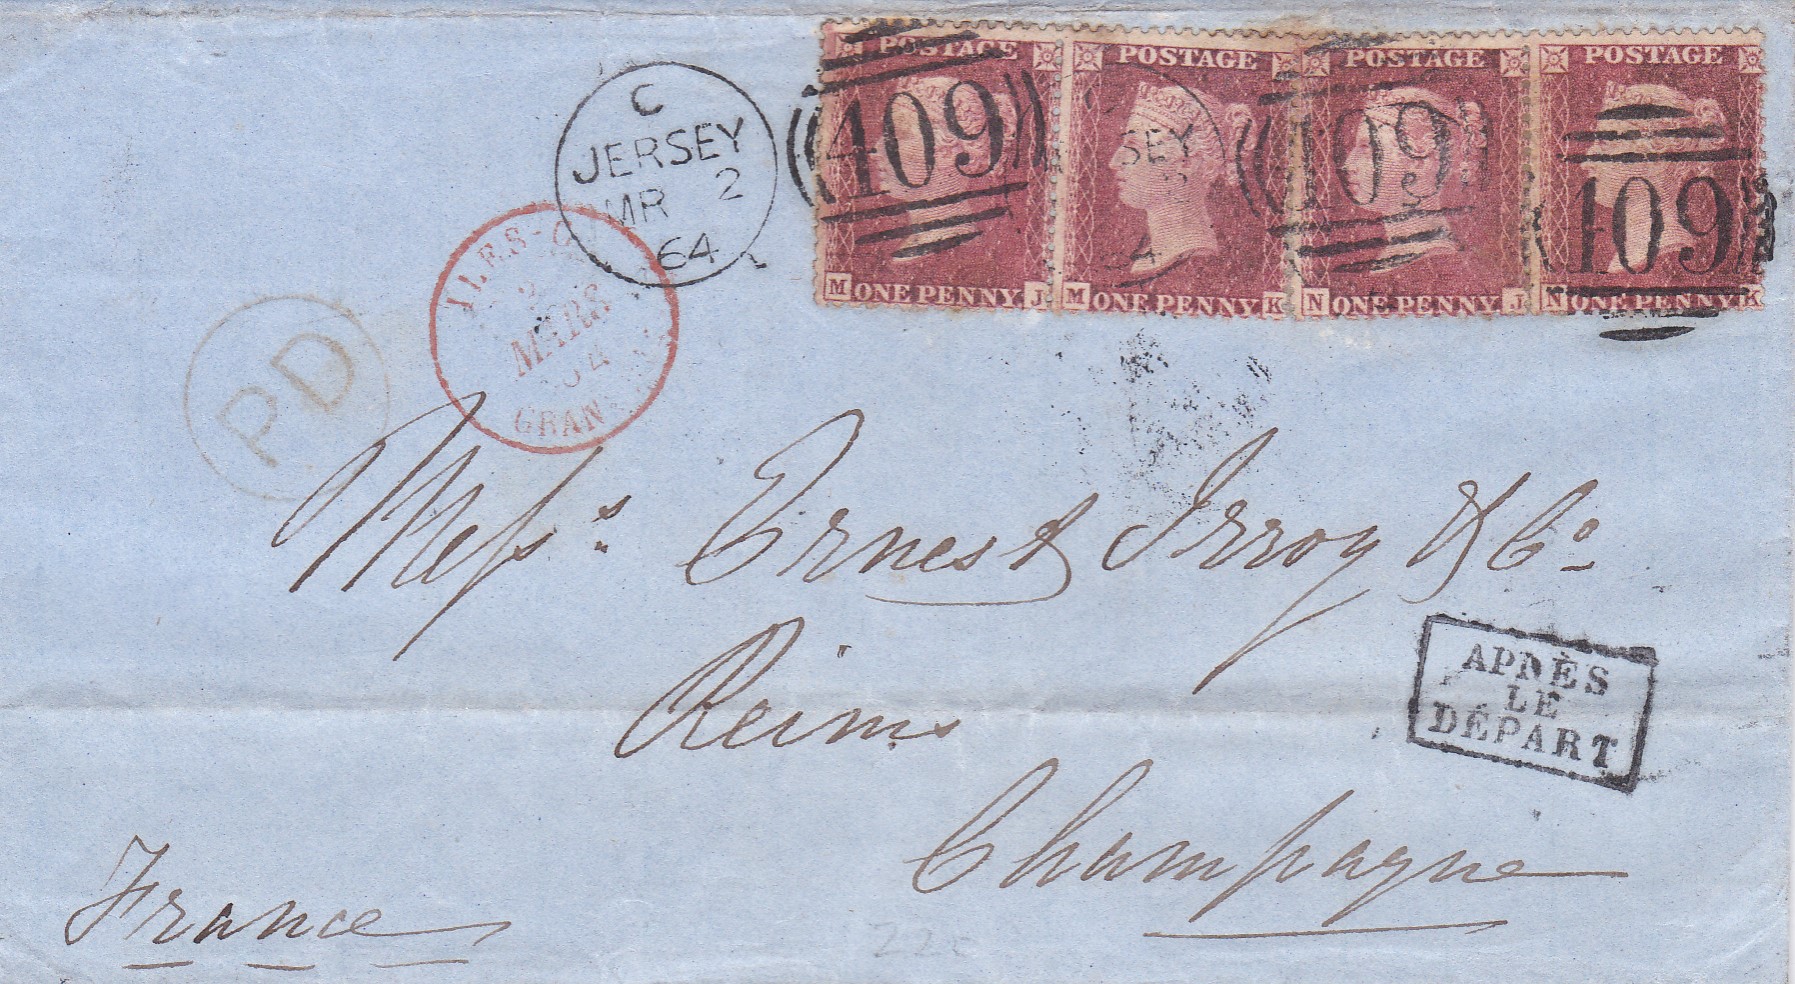 POSTAGE POSTAGE POSTAGE POSTAGE
C
JERSEY
MR 2
64
409 SEY 409 409
M ONE PENNY J M ONE PENNY K N ONE PENNY J N ONE PENNY K
ILES-C
MARS
GRAN
PD
Mess.rs Ernest Irroy & Co
Reims
APRÈS
LE
DÉPART
Champagne
France
22c